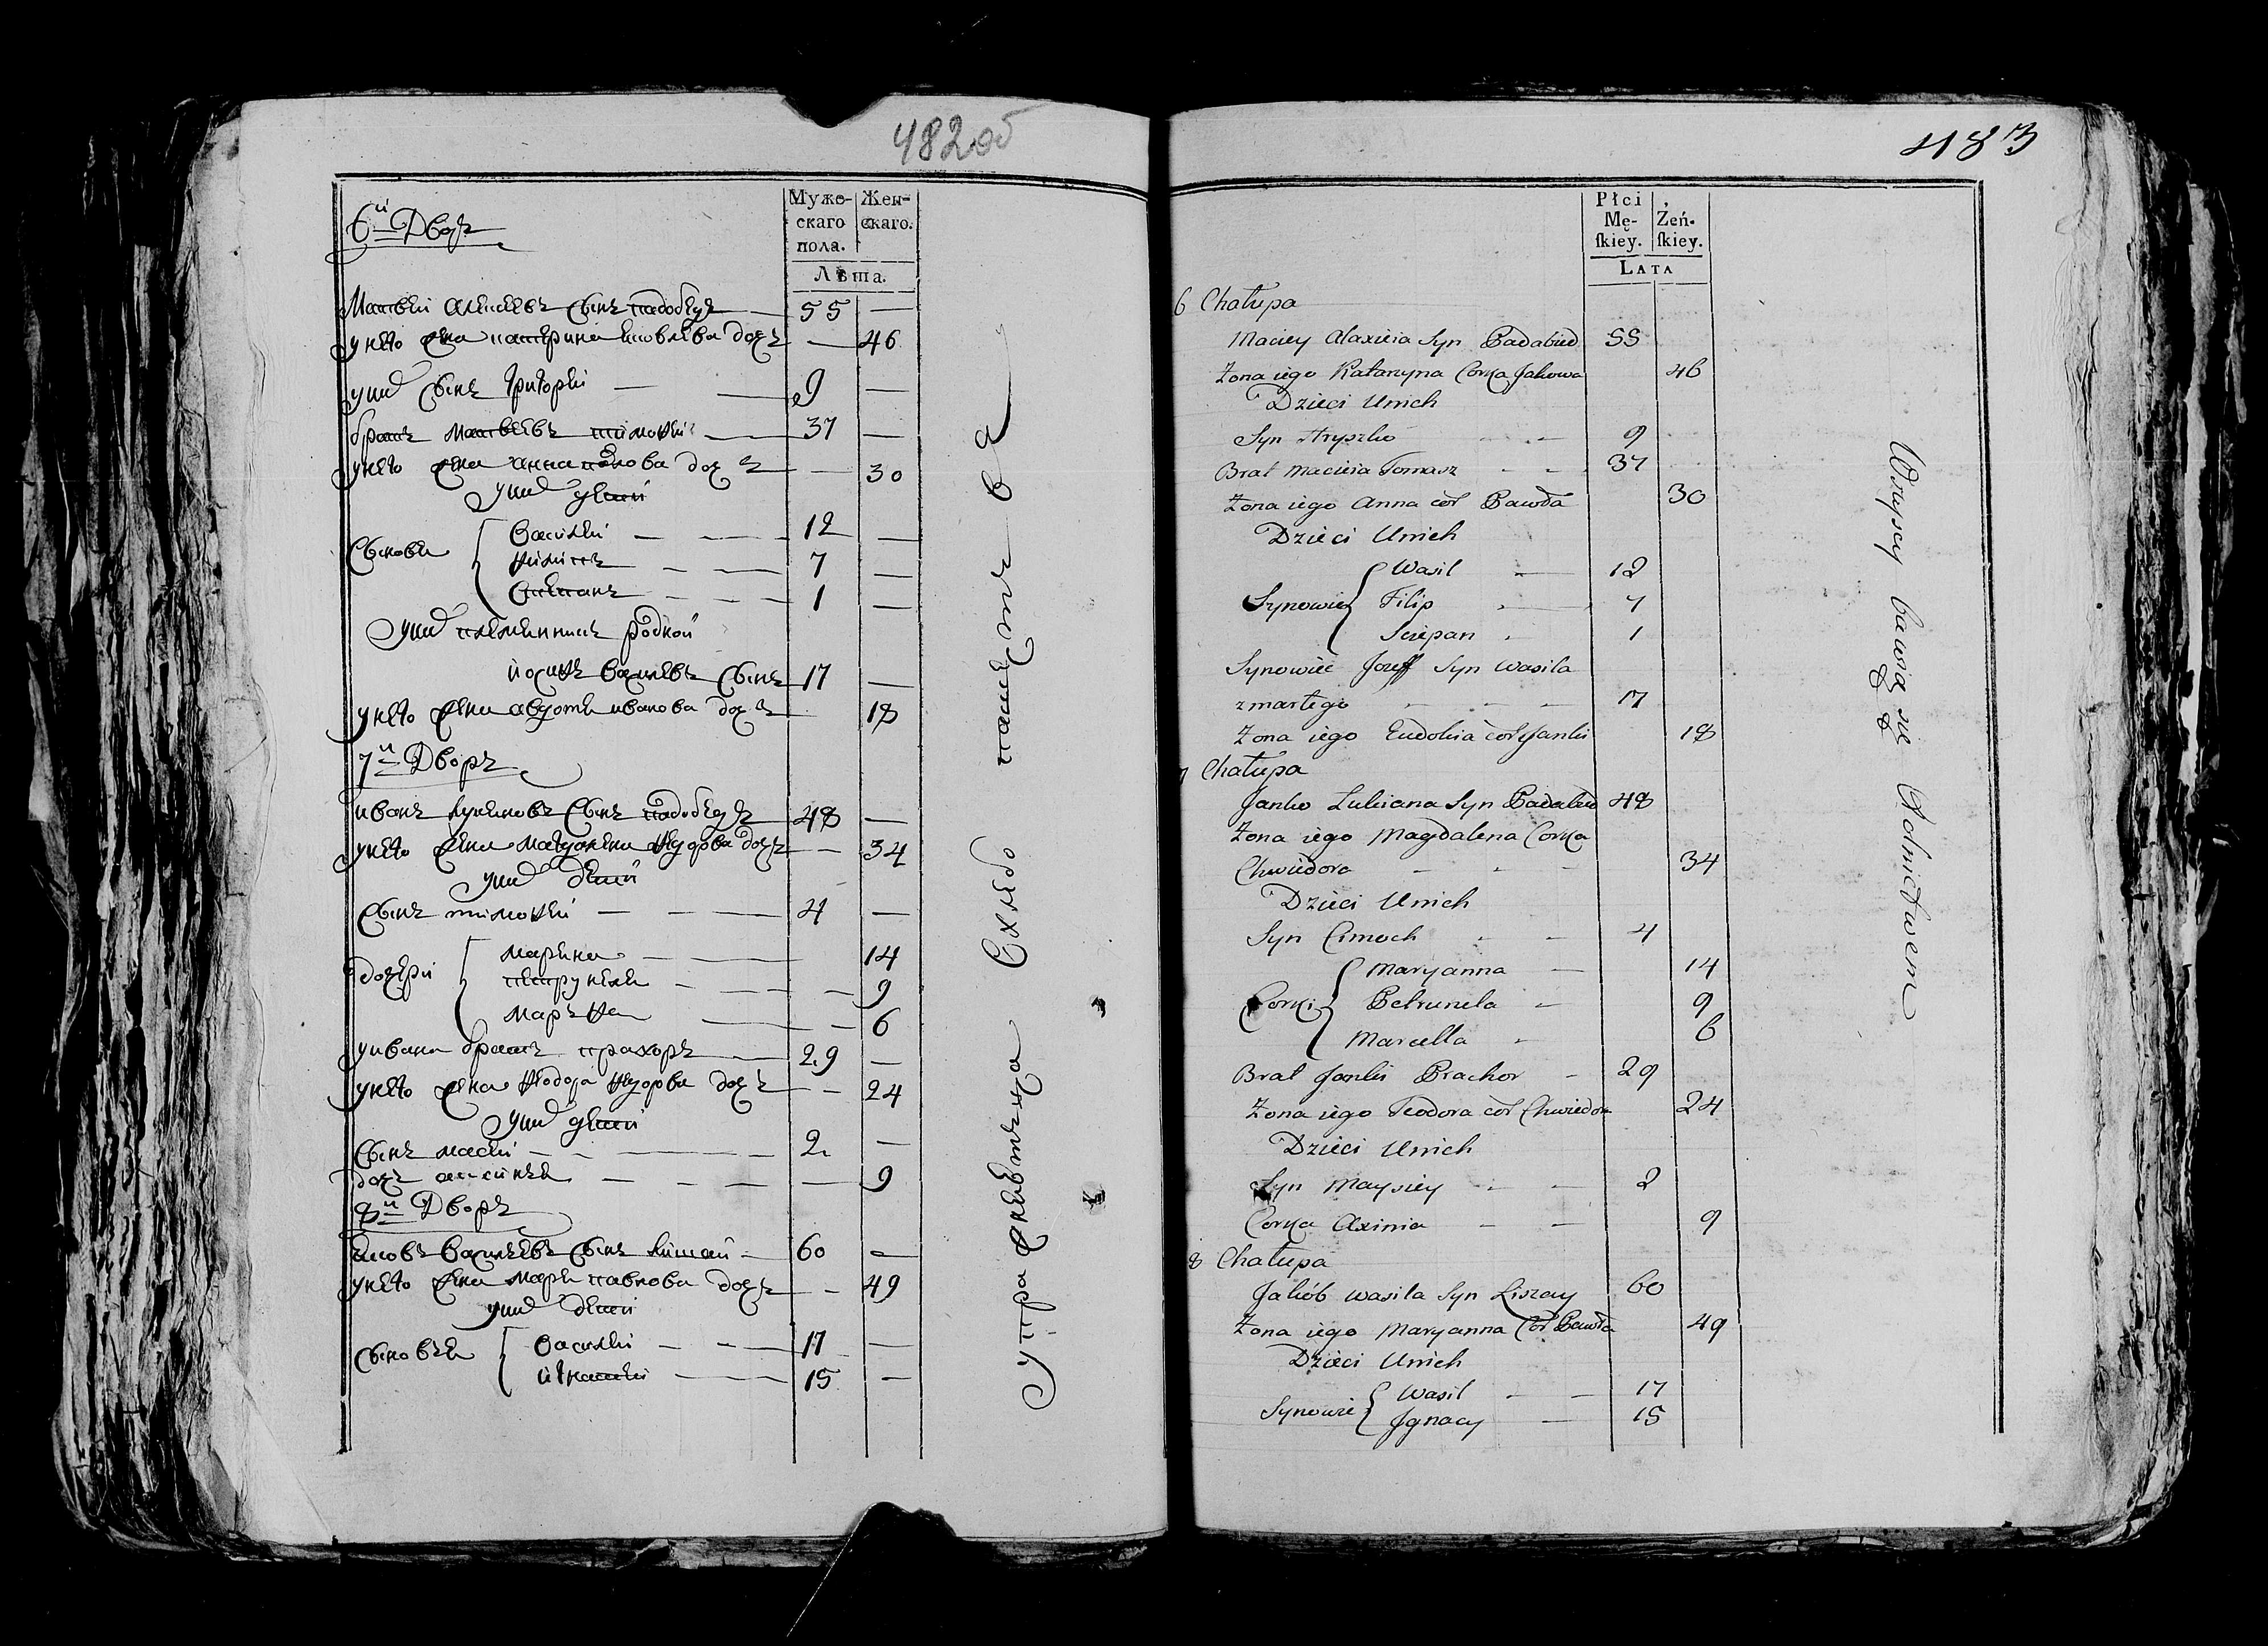 482 об
6й Дворъ
Муже-
скаго
пола.
Жен-
скаго.
Лѣта.
Матвей Алексеевъ сынъ падобедъ 55 —
у него жена катерина яковлева дочъ — 46
у них сынъ григорей — 9 —
братъ матвеевъ тимофей 37 —
у него жена анна павлова доч — 30
у них детей
Сыновя Василей 12 —
филипъ 7 —
Степанъ 1 —
у них племенникъ родной
иосифъ василевъ сынъ 17 —
у него жена авдотя иванова доч 18
7й Дворъ
иванъ лукяновъ сынъ падобедъ 48 —
у него жена магдалена федорова дочъ — 34
у них детей
Сынъ тимофей — 4 —
дочери марина 14
петрунеля — 9
маръцеля — 6
у ивана братъ прахоръ 29 —
у него жена феодора федорова доч — 24
у них детей
Сынъ мосей 2 —
дочъ аксиня — 9
8й Дворъ
Яковъ василевъ сынъ лишай 60 —
у него жена маря павлова дочъ — 49
у них детей
Сыновя Василей 17 —
игнатей 15 —
483
Płci
Mę-
skiey.
Żeń-
skiey.
LATA
6 Chałupa
Maciey Alaxieia Syn Padabied 55
Żona iego Katarzyna Corka Jakowa 46
Dzieci Unich
Syn Hryszko 9
Brat Macieia Tomasz 37
Żona iego Anna cor Pawła 30
Dzieci Unich
Synowie Wasil 12
Filip 7
Sciepan 1
Synowiec Jozeff Syn Wasila
zmarłego 17
Żona iego Eudokia cor Janki 18
7 Chałupa
Janko Lukiana Syn Padabied 48
Żona iego Magdalena Corka
Chwiedora 34
Dzieci Unich
Syn Cimoch 4
Corki Maryanna 14
Petrunela 9
Marcella 6
Brat Janki Prachor 29
Żona iego Teodora cor Chwiedora 24
Dzieci Unich
Syn Maysiey 2
Corka Axinia 9
8 Chałupa
Jakób Wasila Syn Liszay 60
Żona iego Maryanna Cor Pawła 49
Dzieci Unich
Synowie Wasil 17
Jgnacy 15
Wszyscy bawią się Rolnictwem